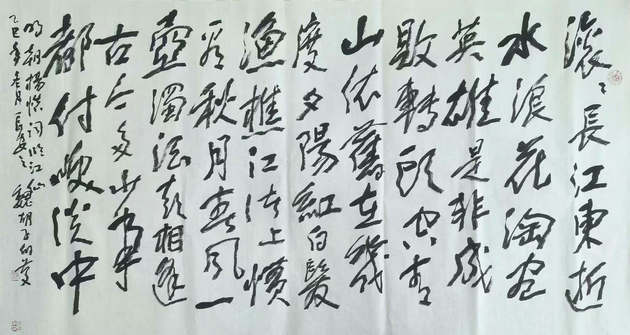 滚々長江東逝
水浪花淘尽
英雄是非成
敗轉頭空青
山依舊在幾
度夕陽紅白髮
漁樵江渚上慣
看秋月春風一
壺濁酒喜相逢
古今多少事
都付笑談中
明朝楊慎词临江仙
乙巳年冬月長安 魏胡子